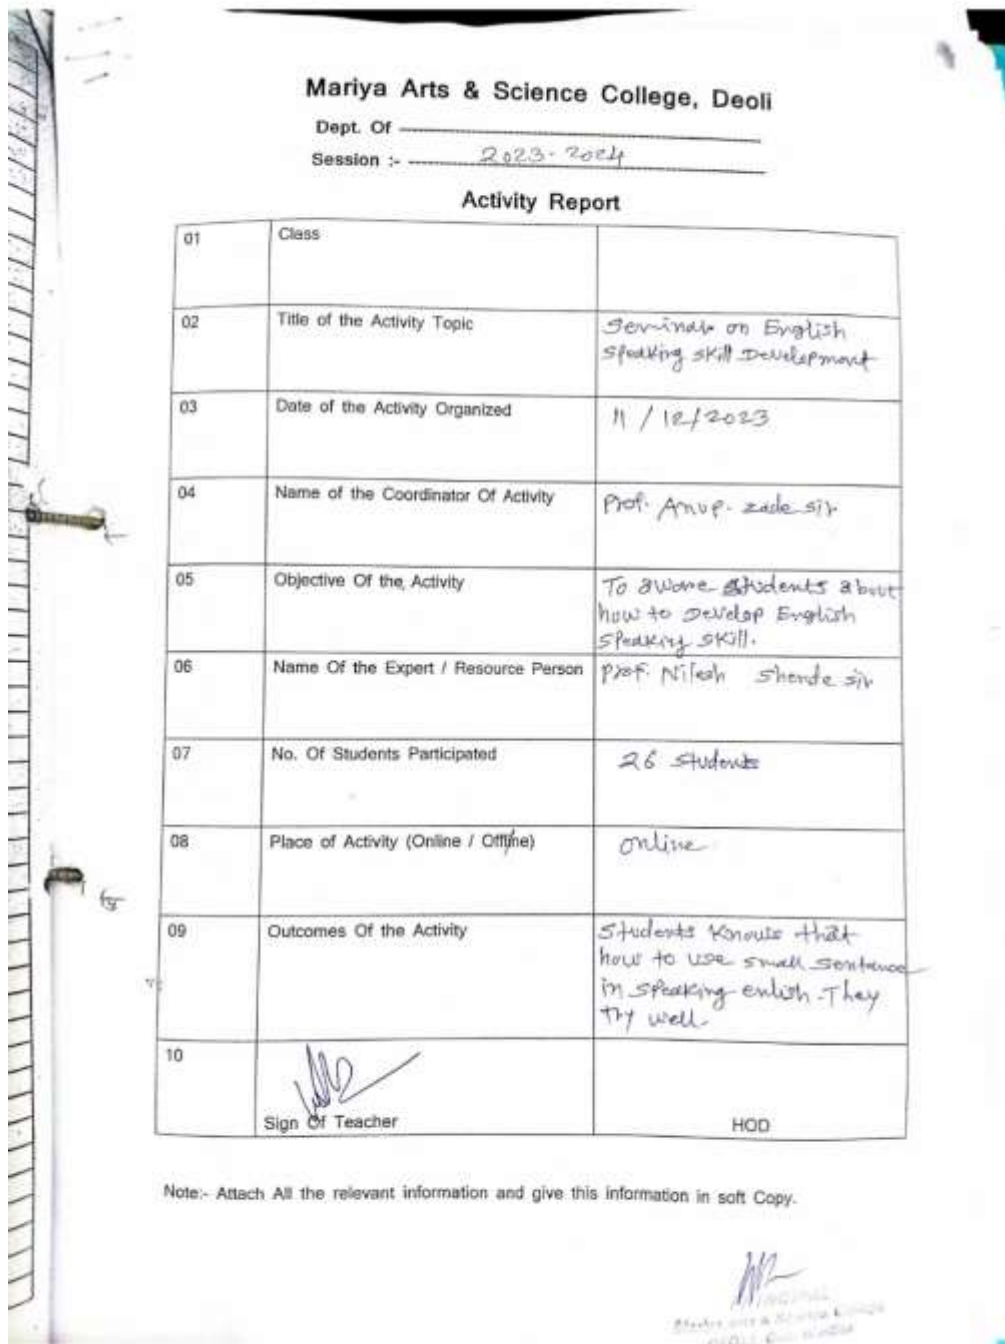 Mariya Arts & Science College, Deoli
Dept. Of
Session :- 2023-2024
Activity Report
01 Class
02 Title of the Activity Topic
Seminar on English
Speaking skill Development
03 Date of the Activity Organized
11 / 12/2023
04 Name of the Coordinator Of Activity
Prof. Anup. zade sir
05 Objective Of the Activity
To aware students about
how to Develop English
Speaking skill.
06 Name Of the Expert / Resource Person
Prof. Nilesh Shende sir
07 No. Of Students Participated
26 students
08 Place of Activity (Online / Offline)
online
09 Outcomes Of the Activity
Students knows that
how to use small sentence
in speaking enlish. They
try well.
10
Sign Of Teacher
HOD
Note:- Attach All the relevant information and give this information in soft Copy.